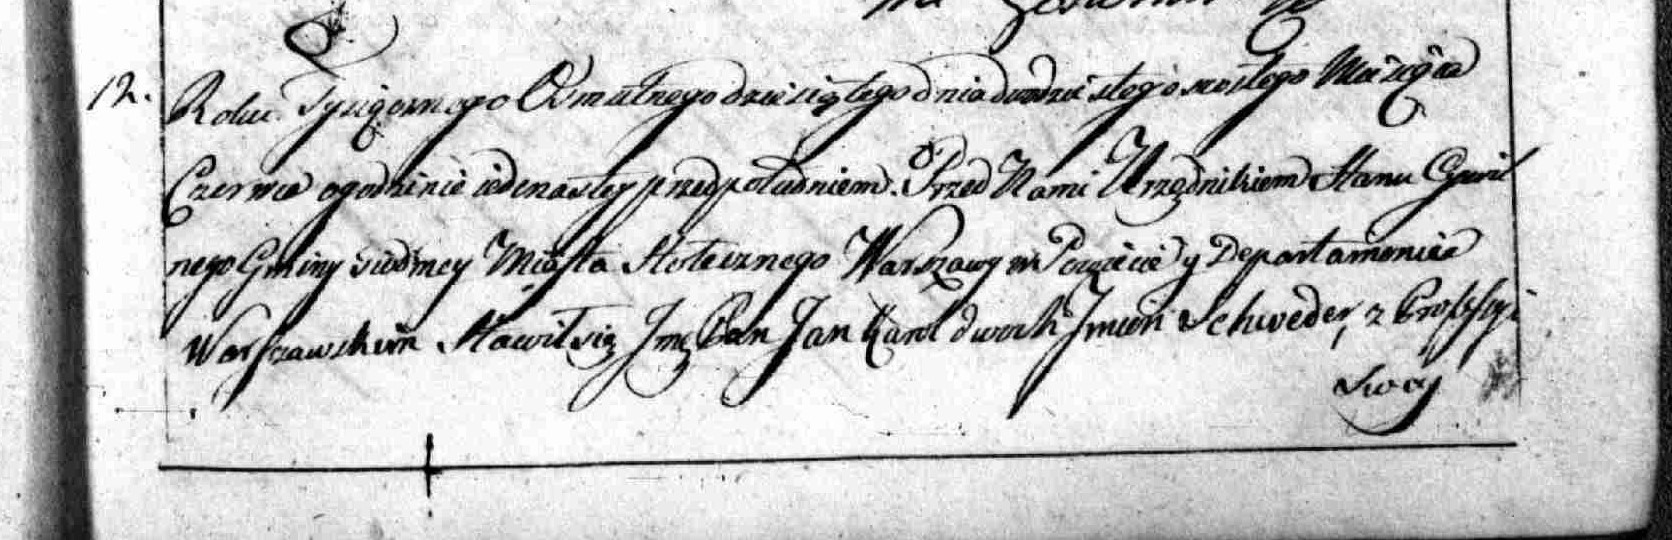 12. Roku Tysiącznego Osmsetnego dziesiątego dnia dwudziestego szostego Miesiąca
Czerwca o godzinie iedenastey przed południem. Przed Nami Urzędnikiem Stanu Cywil
nego Gminy Siodmey Miasta Stołecznego Warszawy w Powiecie y Departamencie
Warszawskim Stawił się Jmć Pan Jan Karol dwoch Jmion Schweder, z Professyi
Swey